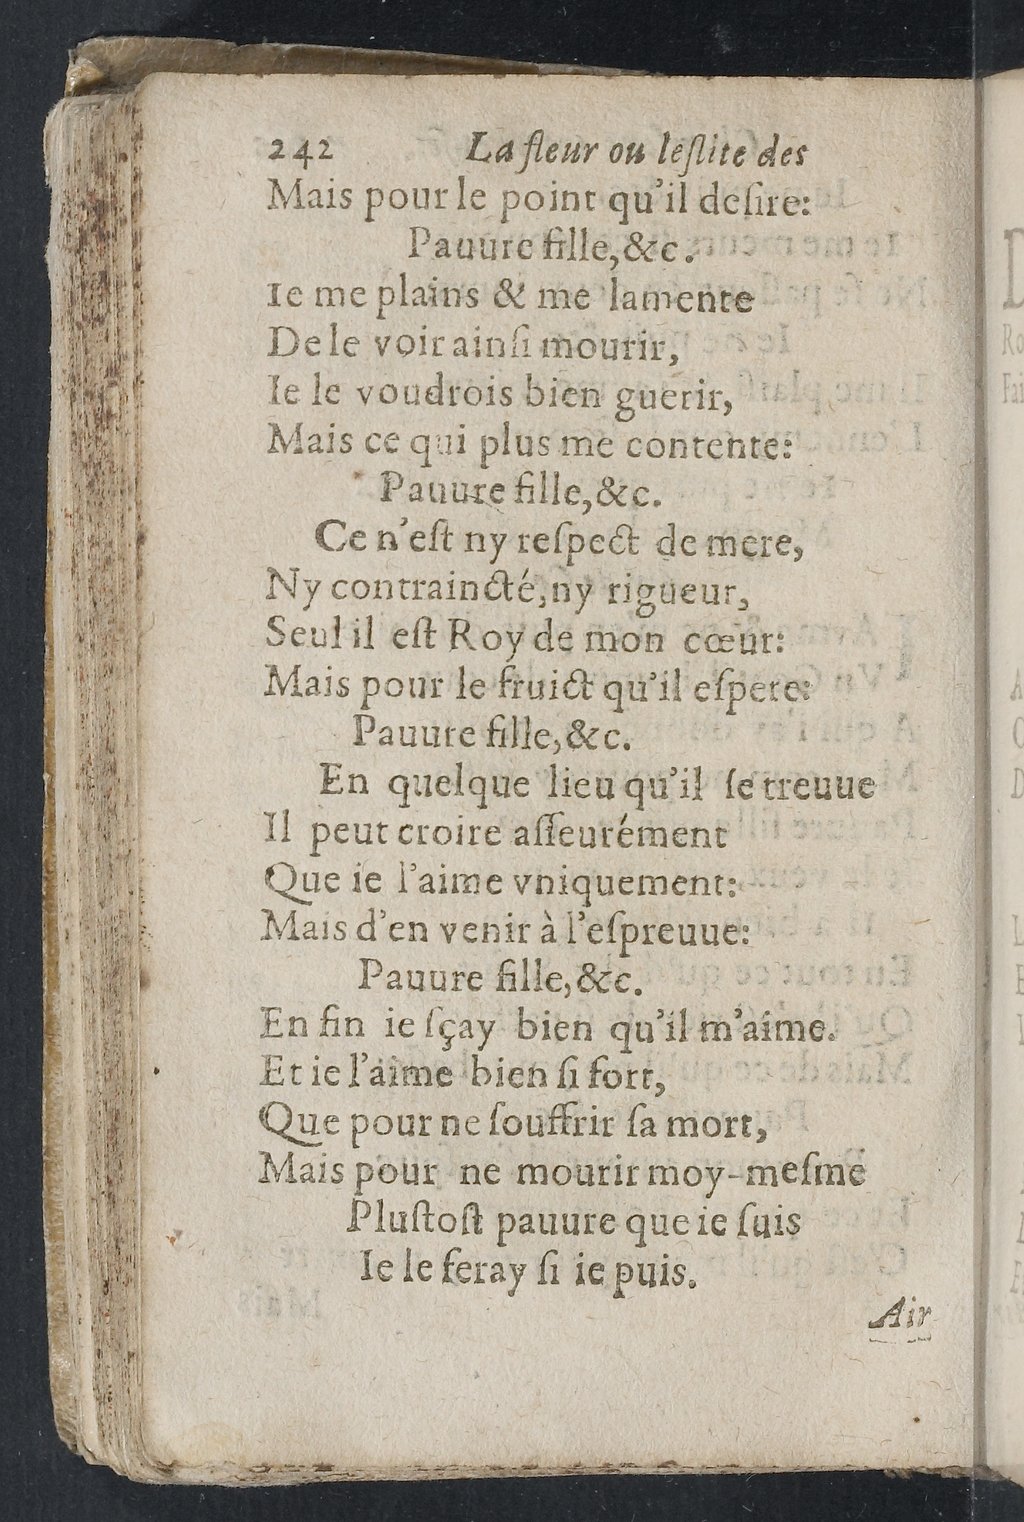 242 La fleur ou leſlite des
Mais pour le point qu'il deſire:
Pauure fille,&c.
Ie me plains & me lamente
De le voir ainſi mourir,
Ie le voudrois bien guerir,
Mais ce qui plus me contente:
Pauure fille,&c.
Ce n'eſt ny reſpect de mere,
Ny contraincté,ny rigueur,
Seul il eſt Roy de mon cœur:
Mais pour le fruict qu'il eſpere:
Pauure fille,&c.
En quelque lieu qu'il ſe treuue
Il peut croire aſſeurément
Que ie l'aime vniquement:
Mais d'en venir à l'eſpreuue:
Pauure fille,&c.
En fin ie ſçay bien qu'il m'aime.
Et ie l'aime bien ſi fort,
Que pour ne ſouffrir ſa mort,
Mais pour ne mourir moy-meſme
Pluſtoſt pauure que ie ſuis
Ie le feray ſi ie puis.
Air